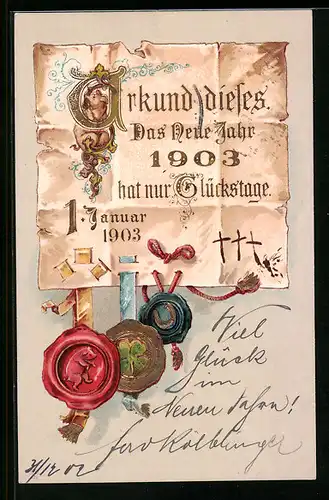 Urkund dieses.
Das Neue Jahr
1903
hat nur Glückstage.
1. Januar
1903
Viel
Glück
im
Neuen Jahre!